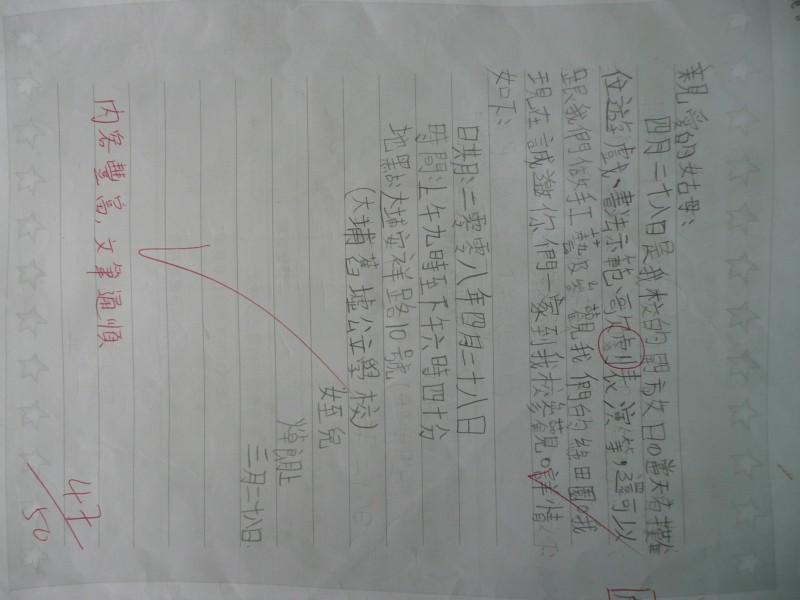 親愛的姑母：
四月二十八日是我校的開放日。當天有攤
位遊戲、書法示範、歌劇表演等，還可以
跟我們做手工藝及參觀我們的綠田園。我
現在誠邀你們一家到我校參觀。詳情
如下：
日期：二零零八年四月二十八日
時間：上午九時至下午六時四十分
地點：大埔安祥路10號
(大埔舊墟公立學校)
姪兒
上
三月二十八日
內容豐富，文筆通順
47/50